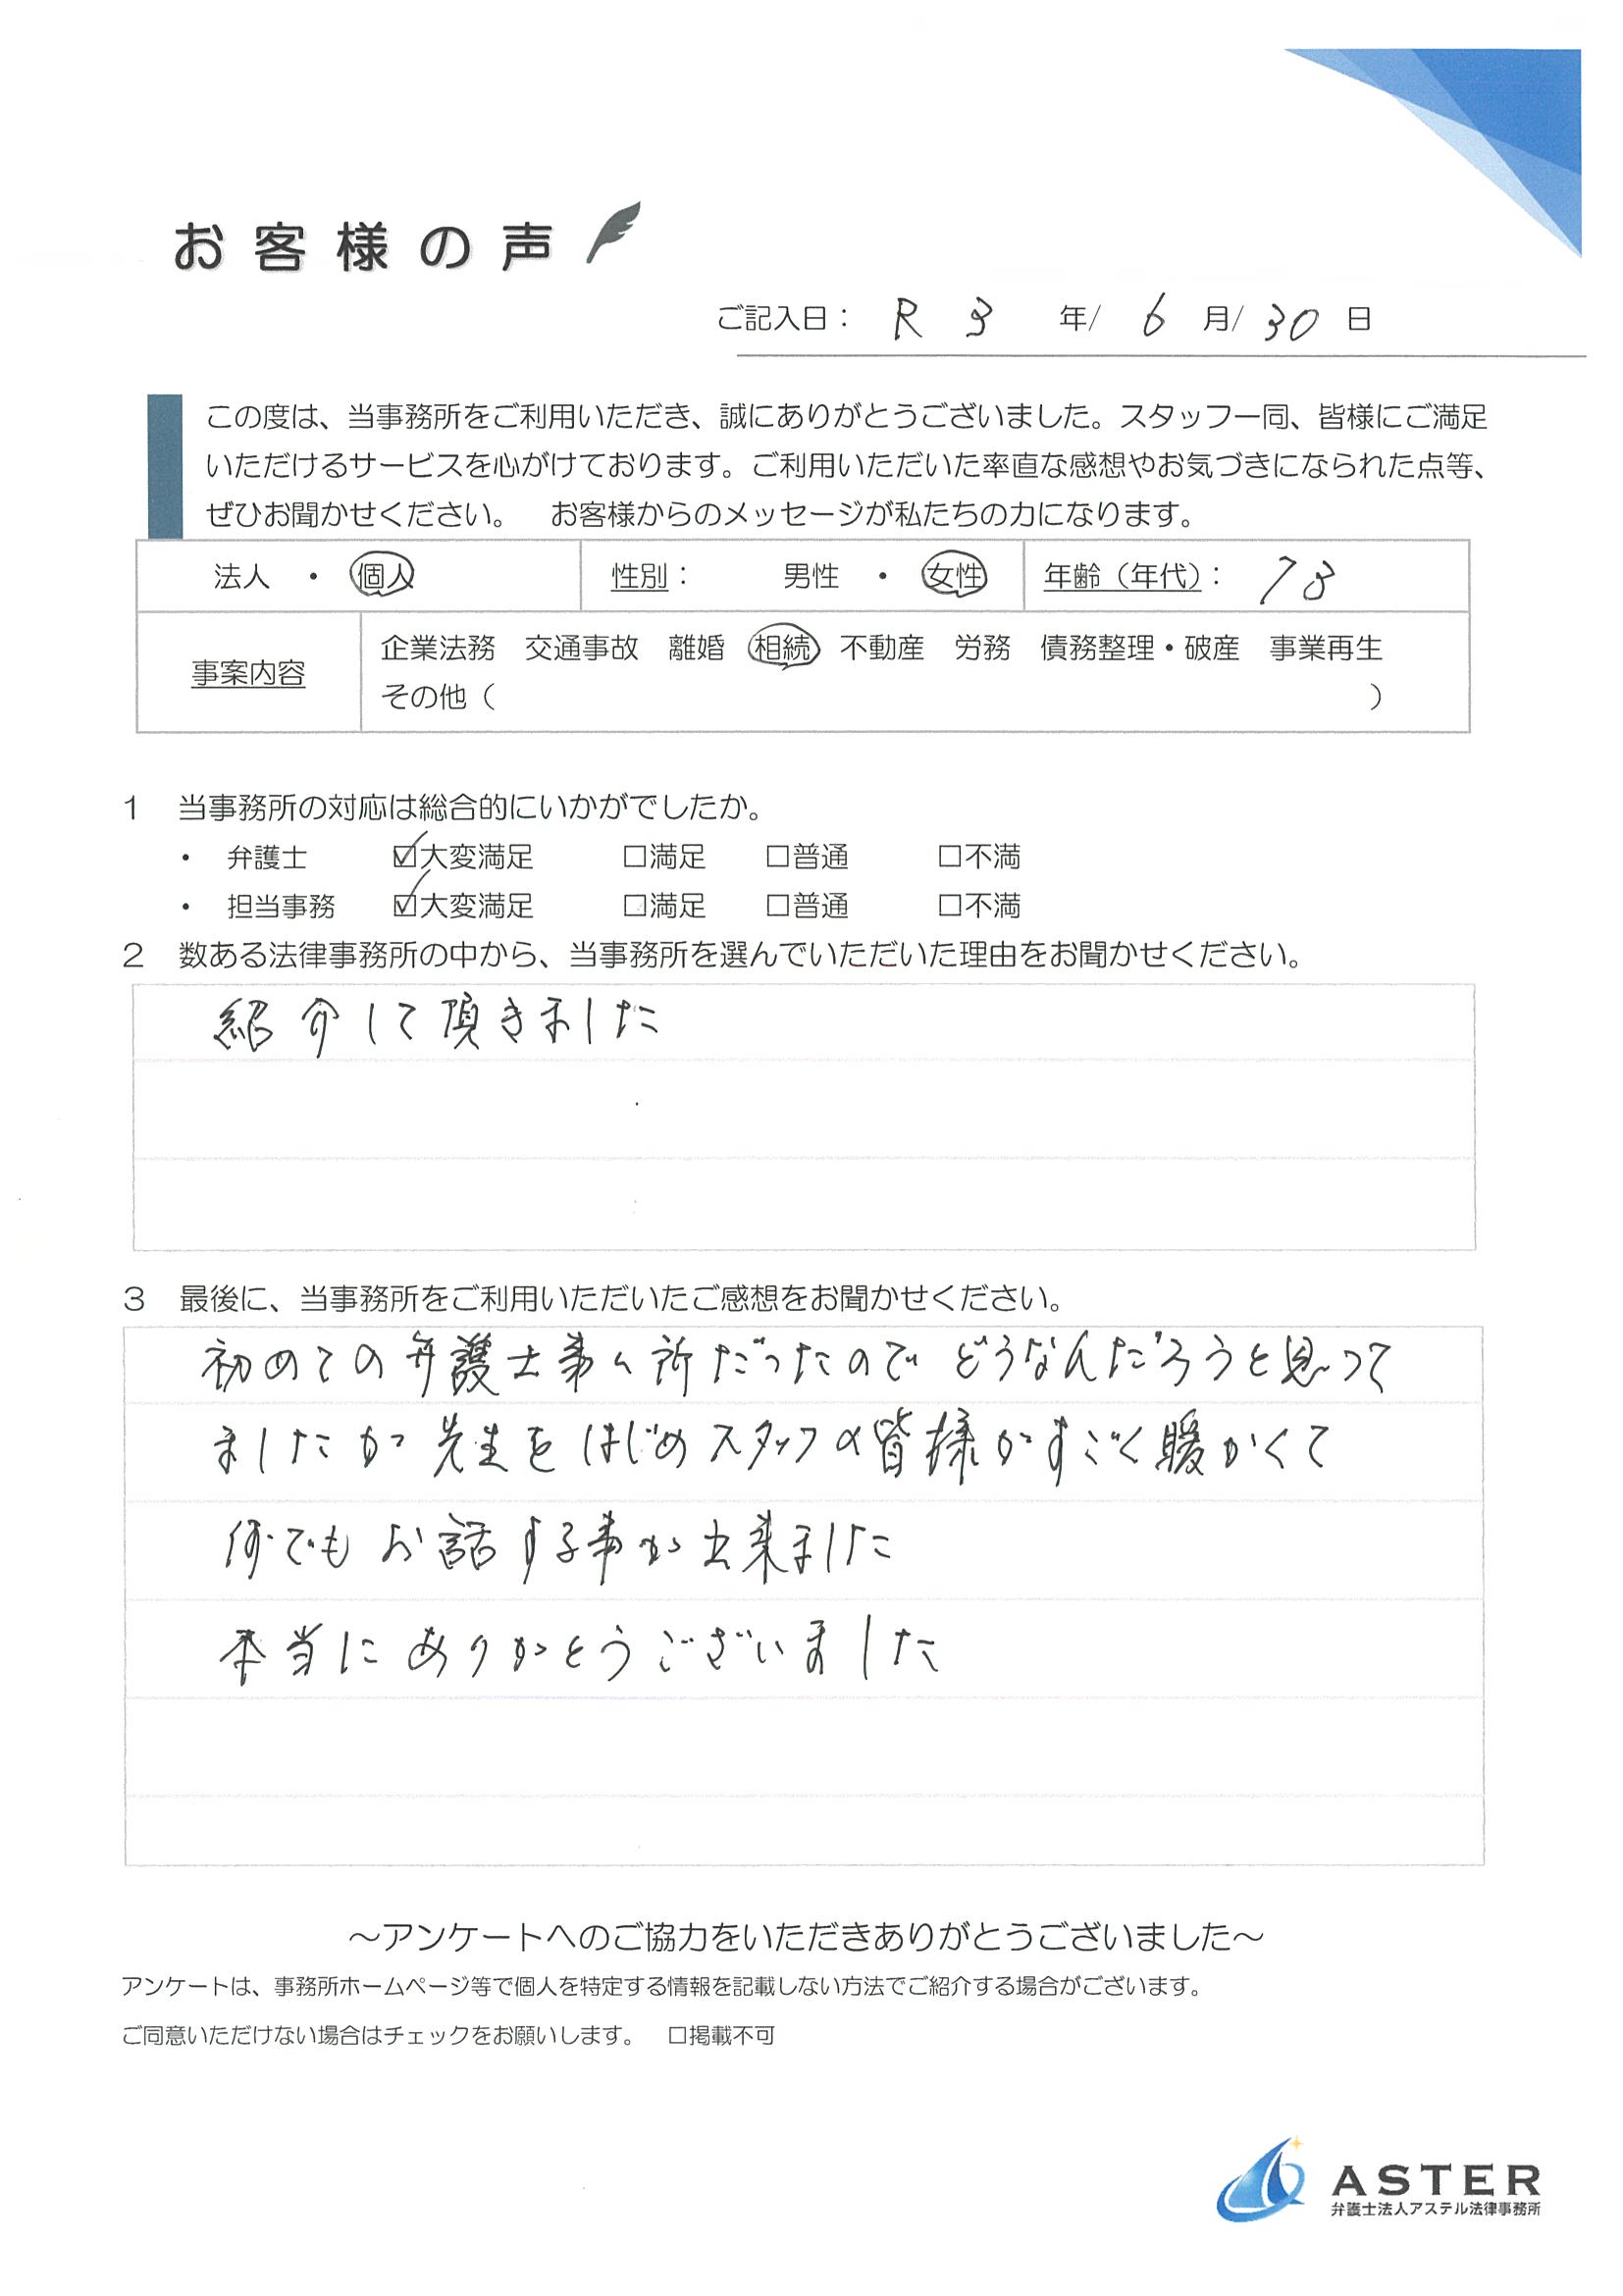 お客様の声
ご記入日： R 3 年/ 6 月/ 30 日
この度は、当事務所をご利用いただき、誠にありがとうございました。スタッフ一同、皆様にご満足
いただけるサービスを心がけております。ご利用いただいた率直な感想やお気づきになられた点等、
ぜひお聞かせください。　お客様からのメッセージが私たちの力になります。
法人 ・ 個人 性別： 男性 ・ 女性 年齢（年代）： 73
事案内容
企業法務 交通事故 離婚 相続 不動産 労務 債務整理・破産 事業再生
その他（ ）
1 当事務所の対応は総合的にいかがでしたか。
・ 弁護士 ☑大変満足 □満足 □普通 □不満
・ 担当事務 ☑大変満足 □満足 □普通 □不満
2 数ある法律事務所の中から、当事務所を選んでいただいた理由をお聞かせください。
紹介して頂きました
3 最後に、当事務所をご利用いただいたご感想をお聞かせください。
初めての弁護士事ム所だったので どうなんだろうと思って
ましたが 先生をはじめスタッフの皆様がすごく暖かくて
何でもお話する事が出来ました
本当にありがとうございました
～アンケートへのご協力をいただきありがとうございました～
アンケートは、事務所ホームページ等で個人を特定する情報を記載しない方法でご紹介する場合がございます。
ご同意いただけない場合はチェックをお願いします。 □掲載不可
ASTER
弁護士法人アステル法律事務所